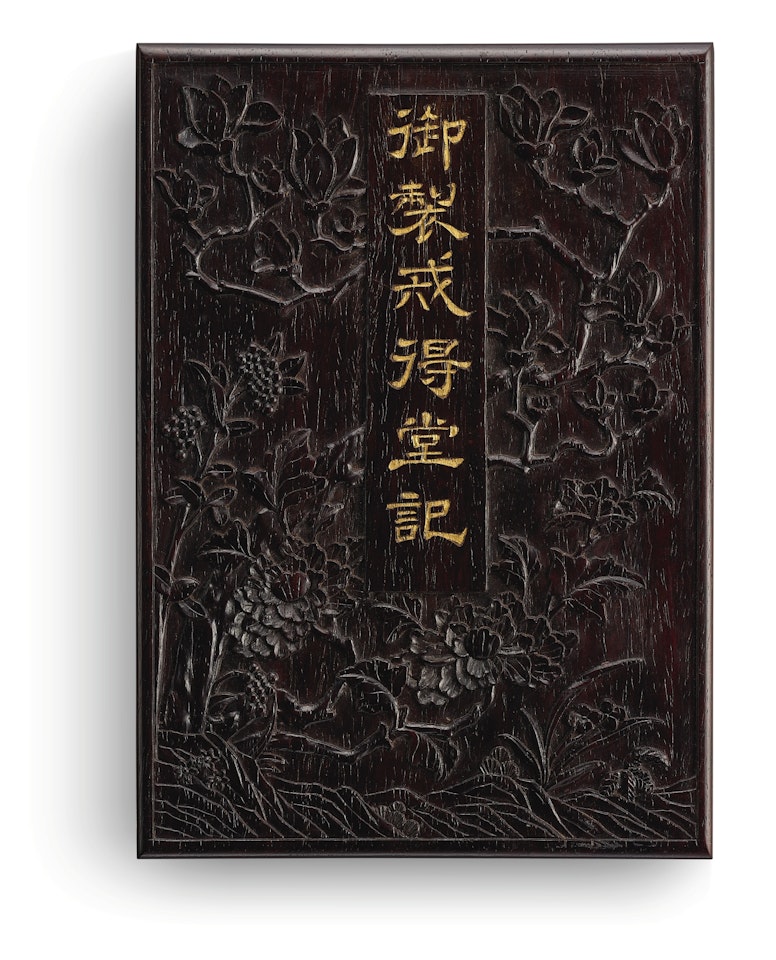 御製戒得堂記